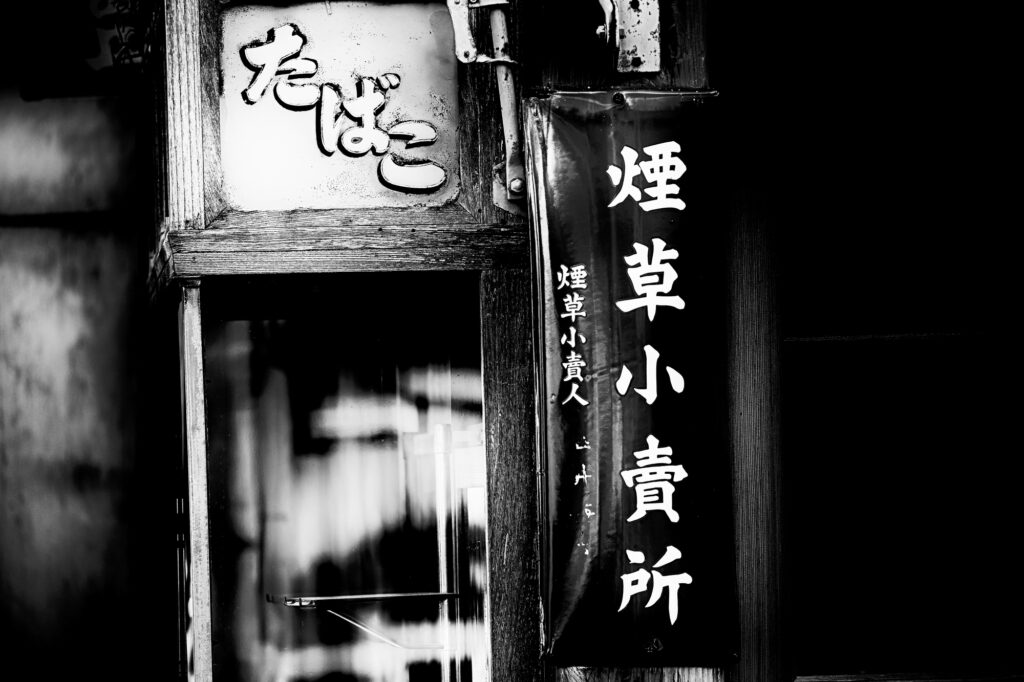 たばこ
煙草小賣所
煙草小賣人